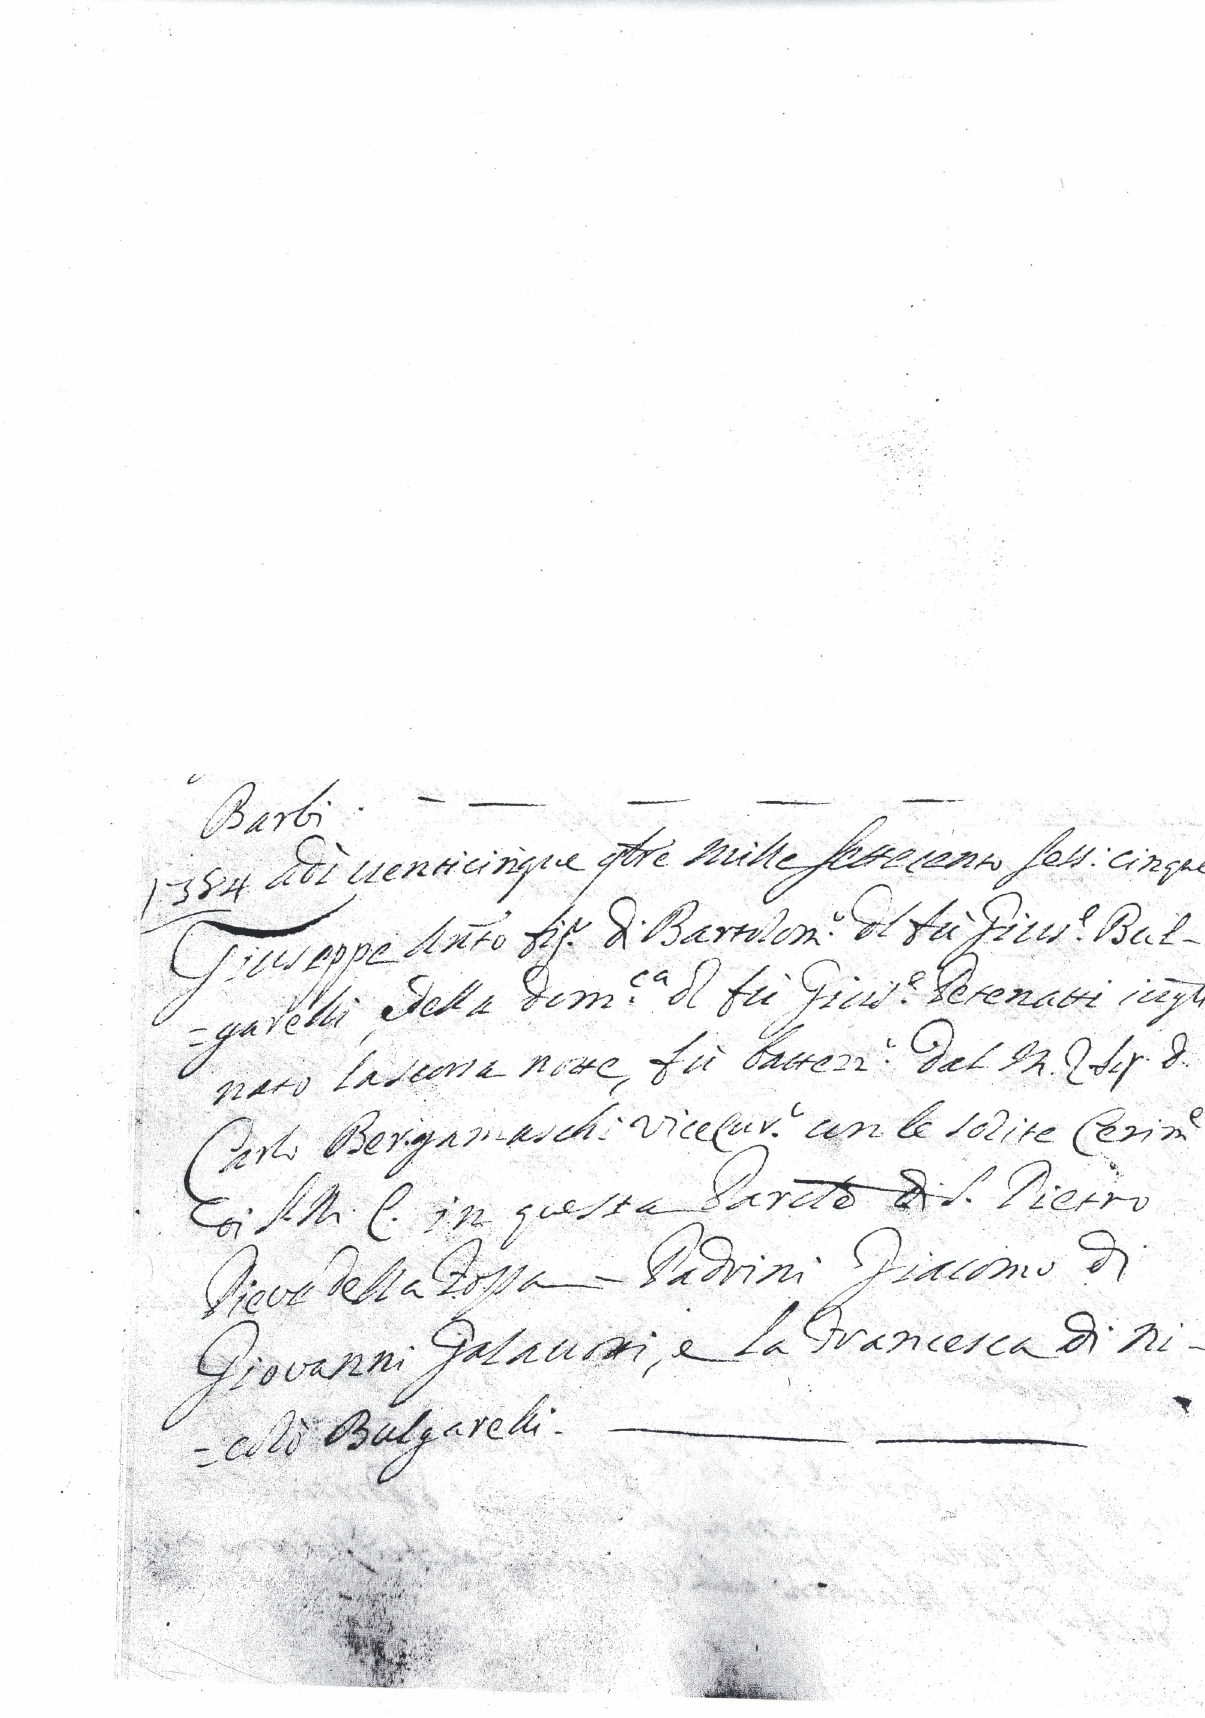 Barbi.
1384 Adi venticinque 9bre Mille Settecento Sess: cinque
Giuseppe Anto fig.º di Bartolom.º dl fù Gius.e Bul-
=garelli, e della Dom.ca dl fù Gius.e iugli
nato la scorsa notte, fù battezz.º dal M. R. Sig. d.
Carlo Bergamaschi viceCur.º con le solite Cerim.e
di S. M. C. in questa S. Pietro
Pieve della Fossa – Padrini Giacomo di
Giovanni e la Francesca di Ni-
=colò Bulgarelli.